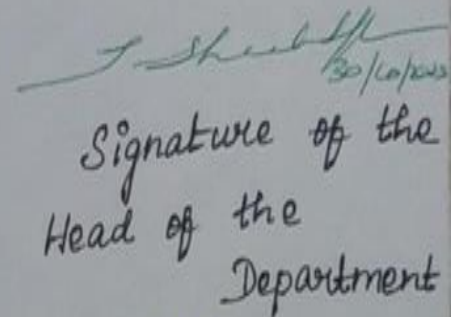 30/10/2023
Signature of the
Head of the
Department